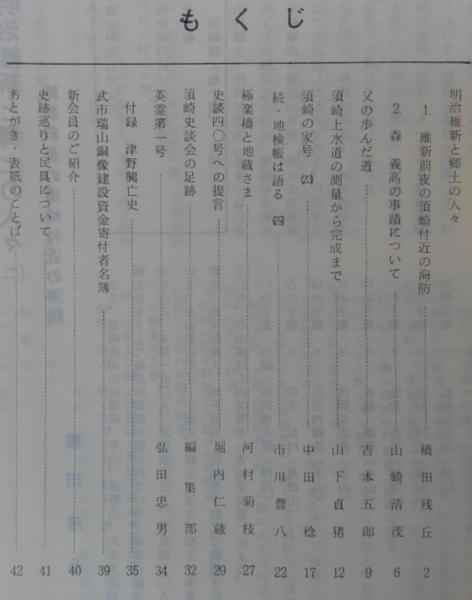 もくじ
明治維新と郷土の人々
1. 維新前夜の須崎付近の海防 橋田残丘 2
2. 森 義高の事蹟について 山崎清茂 6
父の歩んだ道 吉本五郎 9
須崎上水道の測量から完成まで 山下貞猪 12
須崎の家号 ㈡ 中田 稔 17
続・地検帳は語る ㈣ 市川豊八 22
極楽橋と地蔵さま 河村菊枝 27
史談四〇号への提言 堀内仁蔵 29
須崎史談会の足跡 編集部 32
英霊第一号 弘田忠男 34
付録 津野興亡史 35
武市瑞山銅像建設資金寄付者名簿 39
新会員のご紹介 40
史跡巡りと民具について 41
あとがき・表紙のことば 42